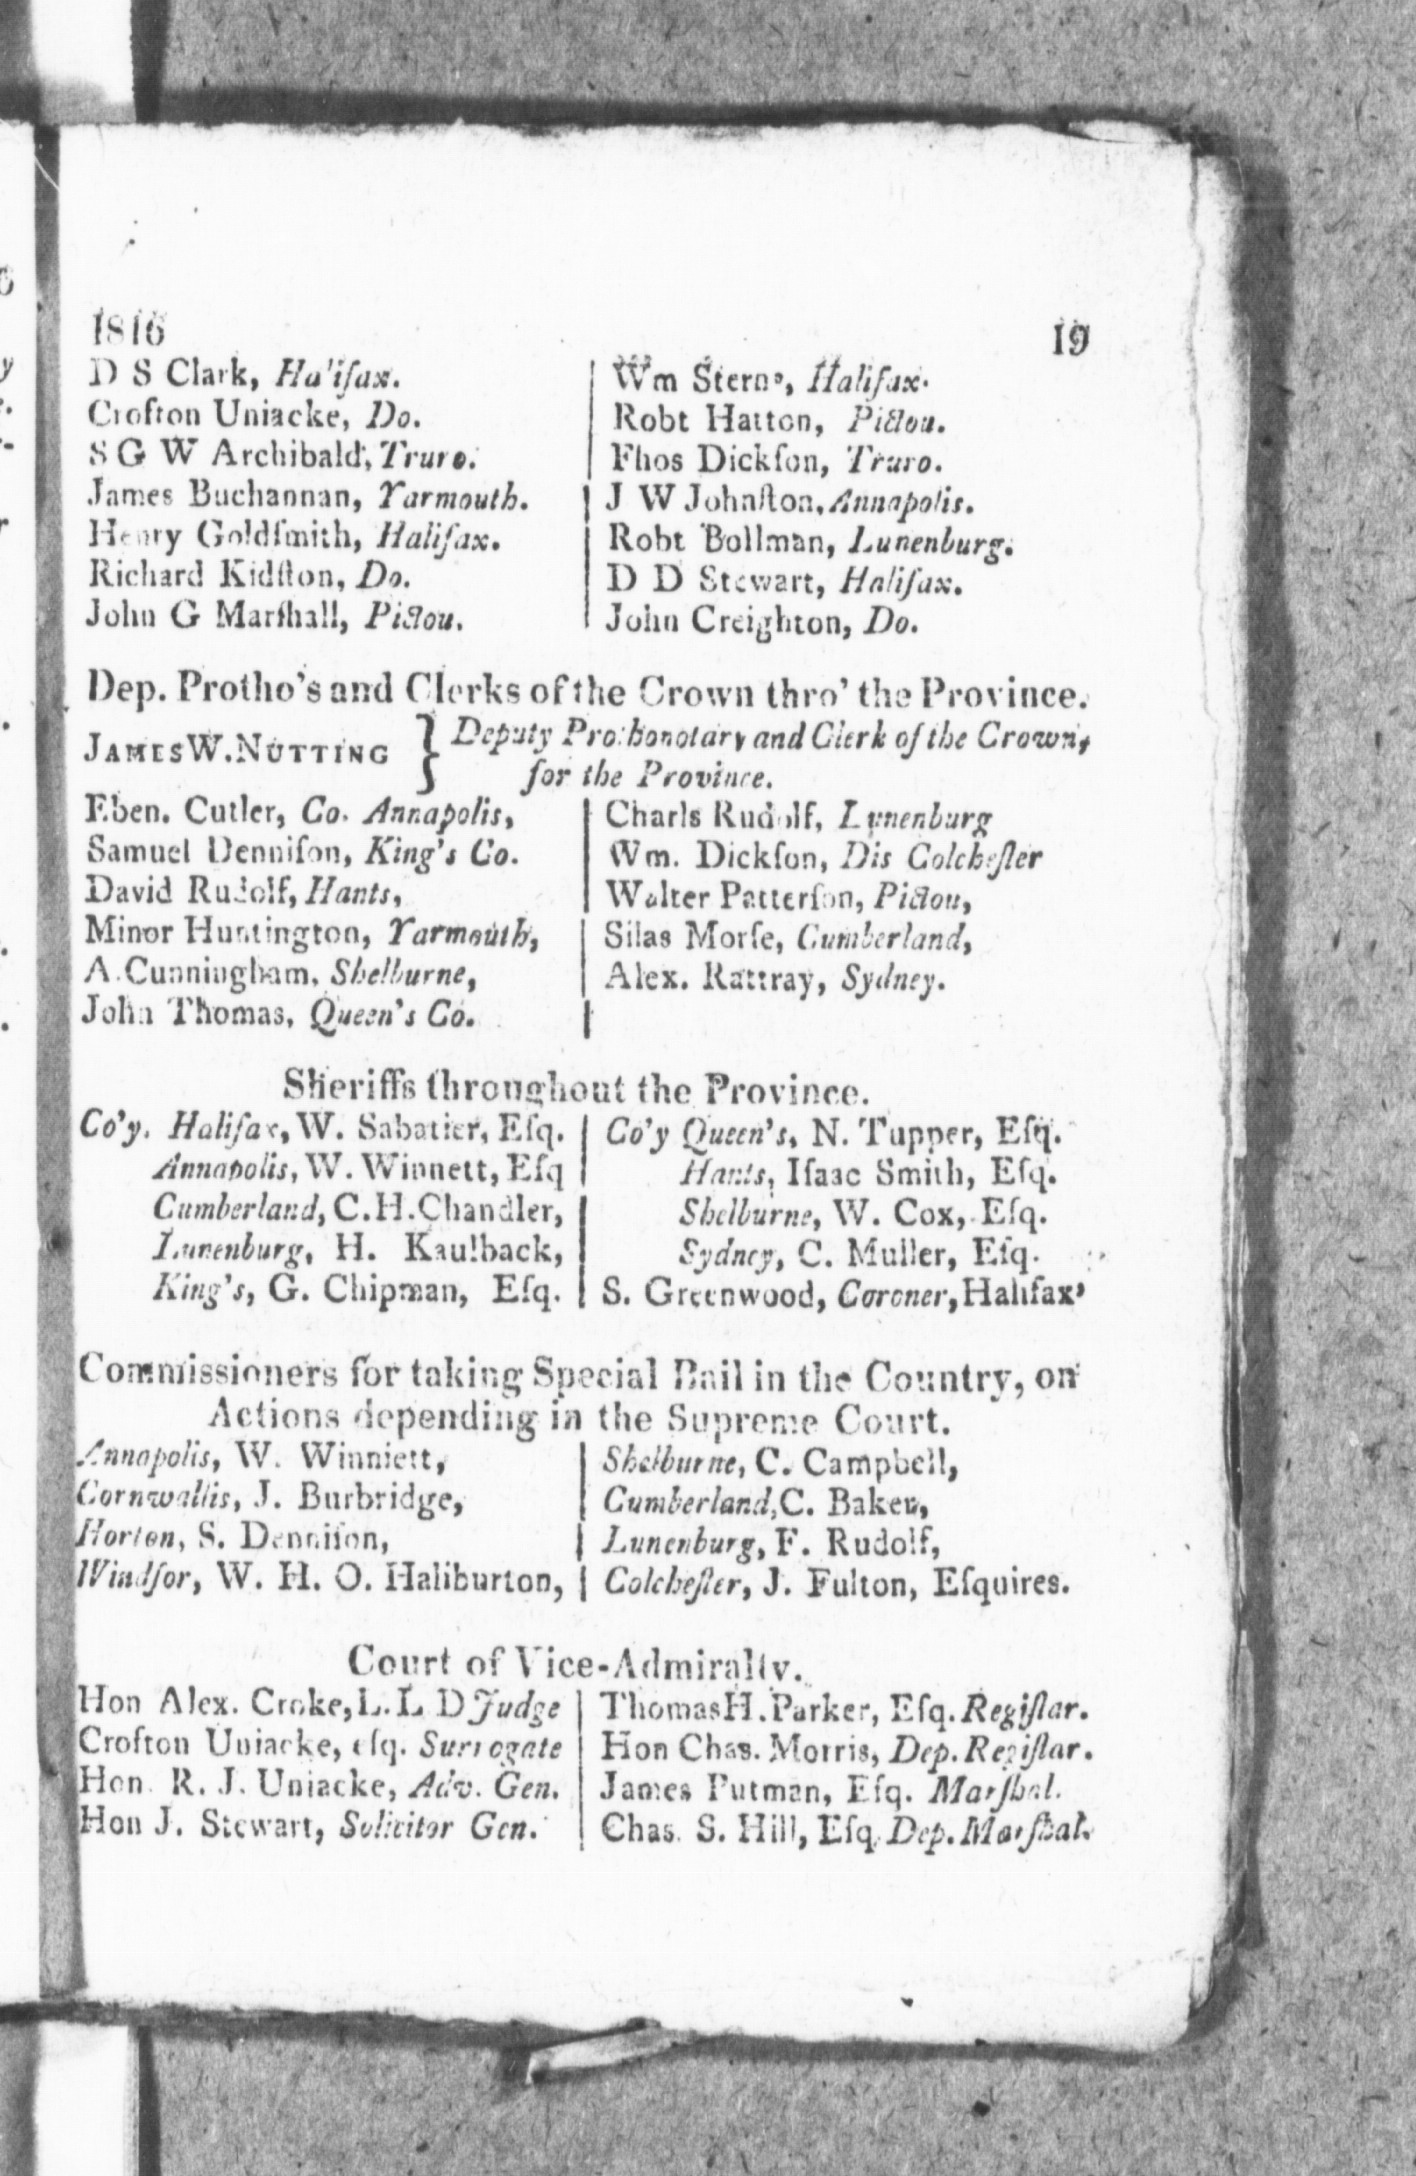 1816 19
D S Clark, Halifax.
Crofton Uniacke, Do.
S G W Archibald, Truro.
James Buchannan, Yarmouth.
Henry Goldſmith, Halifax.
Richard Kidſton, Do.
John G Marſhall, Pictou.
Wm Sterns, Halifax.
Robt Hatton, Pictou.
Thos Dickſon, Truro.
J W Johnſton, Annapolis.
Robt Bollman, Lunenburg.
D D Stewart, Halifax.
John Creighton, Do.
Dep. Protho's and Clerks of the Crown thro' the Province.
JAMES W. NUTTING } Deputy Prothonotary and Clerk of the Crown,
for the Province.
Eben. Cutler, Co. Annapolis,
Samuel Denniſon, King's Co.
David Rudolf, Hants,
Minor Huntington, Yarmouth,
A. Cunningham, Shelburne,
John Thomas, Queen's Co.
Charls Rudolf, Lunenburg
Wm. Dickſon, Dis Colcheſter
Walter Patterſon, Pictou,
Silas Morſe, Cumberland,
Alex. Rattray, Sydney.
Sheriffs throughout the Province.
Co'y. Halifax, W. Sabatier, Eſq.
Annapolis, W. Winnett, Eſq
Cumberland, C. H. Chandler,
Lunenburg, H. Kaulback,
King's, G. Chipman, Eſq.
Co'y Queen's, N. Tupper, Eſq.
Hants, Iſaac Smith, Eſq.
Shelburne, W. Cox, Eſq.
Sydney, C. Muller, Eſq.
S. Greenwood, Coroner, Halifax
Commissioners for taking Special Bail in the Country, on
Actions depending in the Supreme Court.
Annapolis, W. Winniett,
Cornwallis, J. Burbridge,
Horton, S. Denniſon,
Windſor, W. H. O. Haliburton,
Shelburne, C. Campbell,
Cumberland, C. Baker,
Lunenburg, F. Rudolf,
Colcheſter, J. Fulton, Eſquires.
Court of Vice-Admiralty.
Hon Alex. Croke, L. L D Judge
Crofton Uniacke, eſq. Surrogate
Hon. R. J. Uniacke, Adv. Gen.
Hon J. Stewart, Solicitor Gen.
Thomas H. Parker, Eſq. Regiſtar.
Hon Chas. Morris, Dep. Regiſtar.
James Putman, Eſq. Marſhal.
Chas. S. Hill, Eſq. Dep. Marſhal.